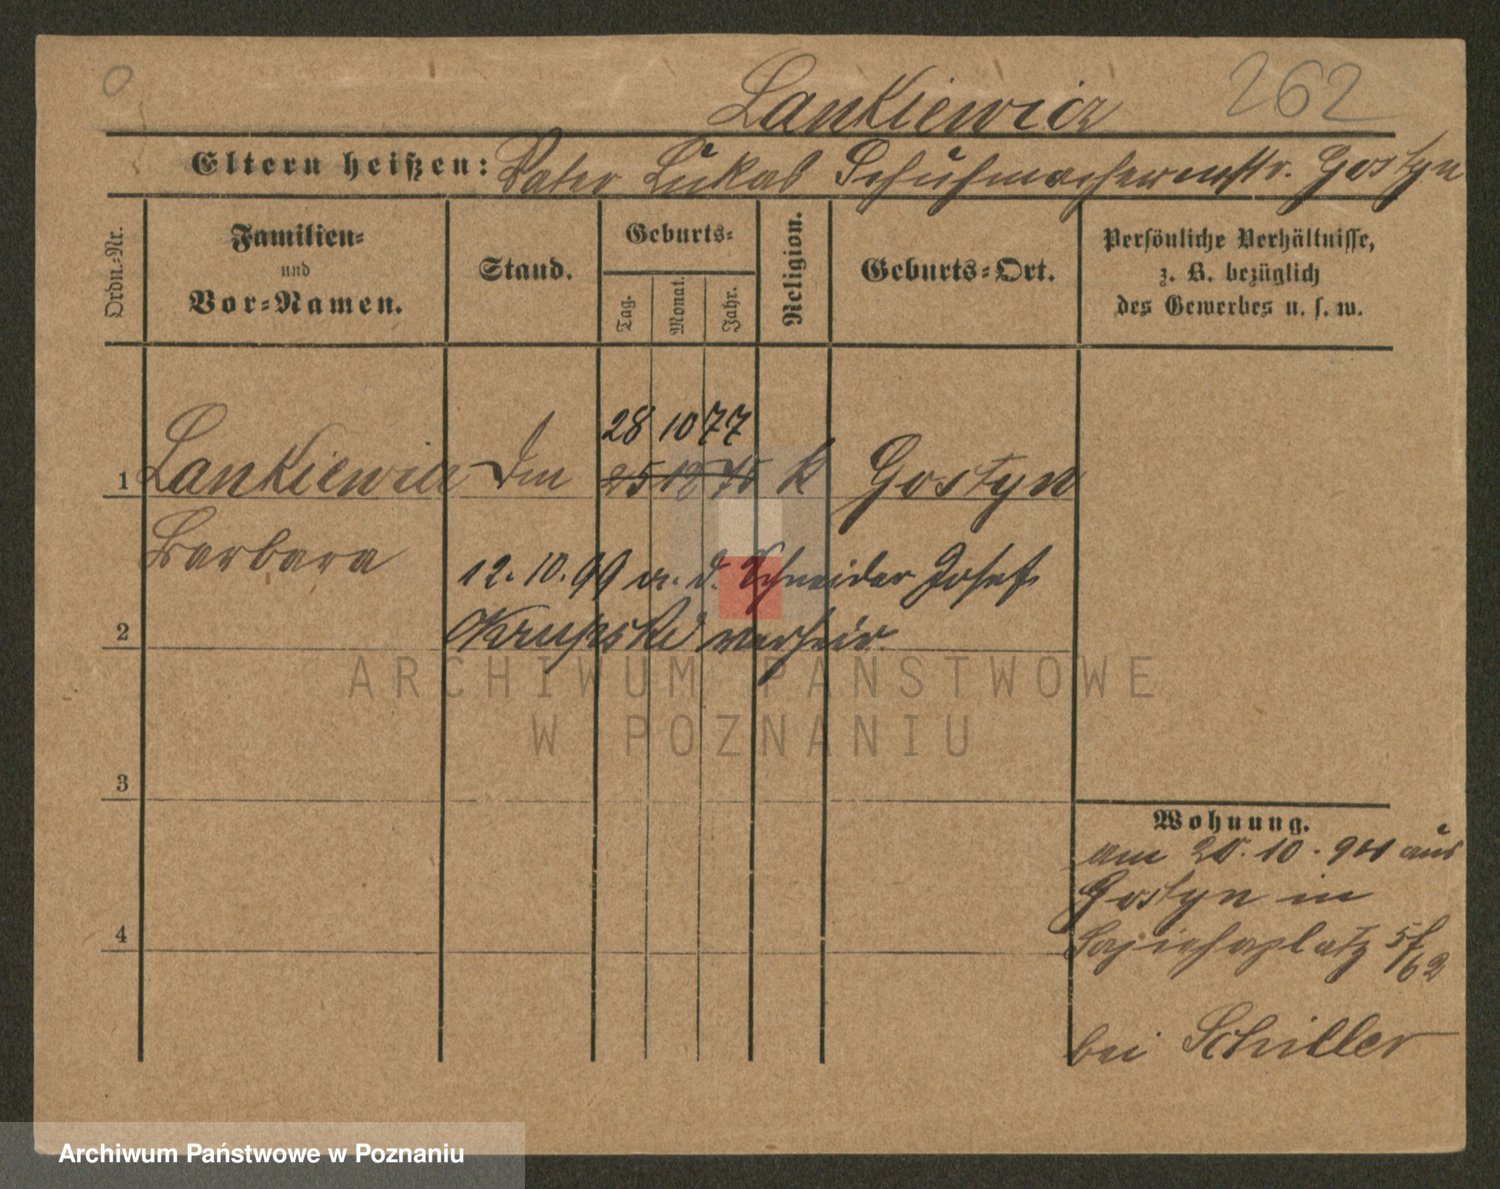 0
262
Lankiewicz
Eltern heißen: Vater Lukas Schuhmachermstr. Gostyn
Ordn.-Nr.
Familien-
und
Vor-Namen.
Stand.
Geburts-
Tag.
Monat.
Jahr.
Religion.
Geburts-Ort.
Persönliche Verhältnisse,
z. B. bezüglich
des Gewerbes u. s. w.
28 10 77
1 Lankiewicz k Gostyn
Barbara
12.10.99 m. d. Schneider Josef
2 Krupski verheir.
3
4
Wohnung.
am 20.10.94 aus
Gostyn in
Sapiehaplatz
bei Schiller
ARCHIWUM PAŃSTWOWE
W POZNANIU
Archiwum Państwowe w Poznaniu